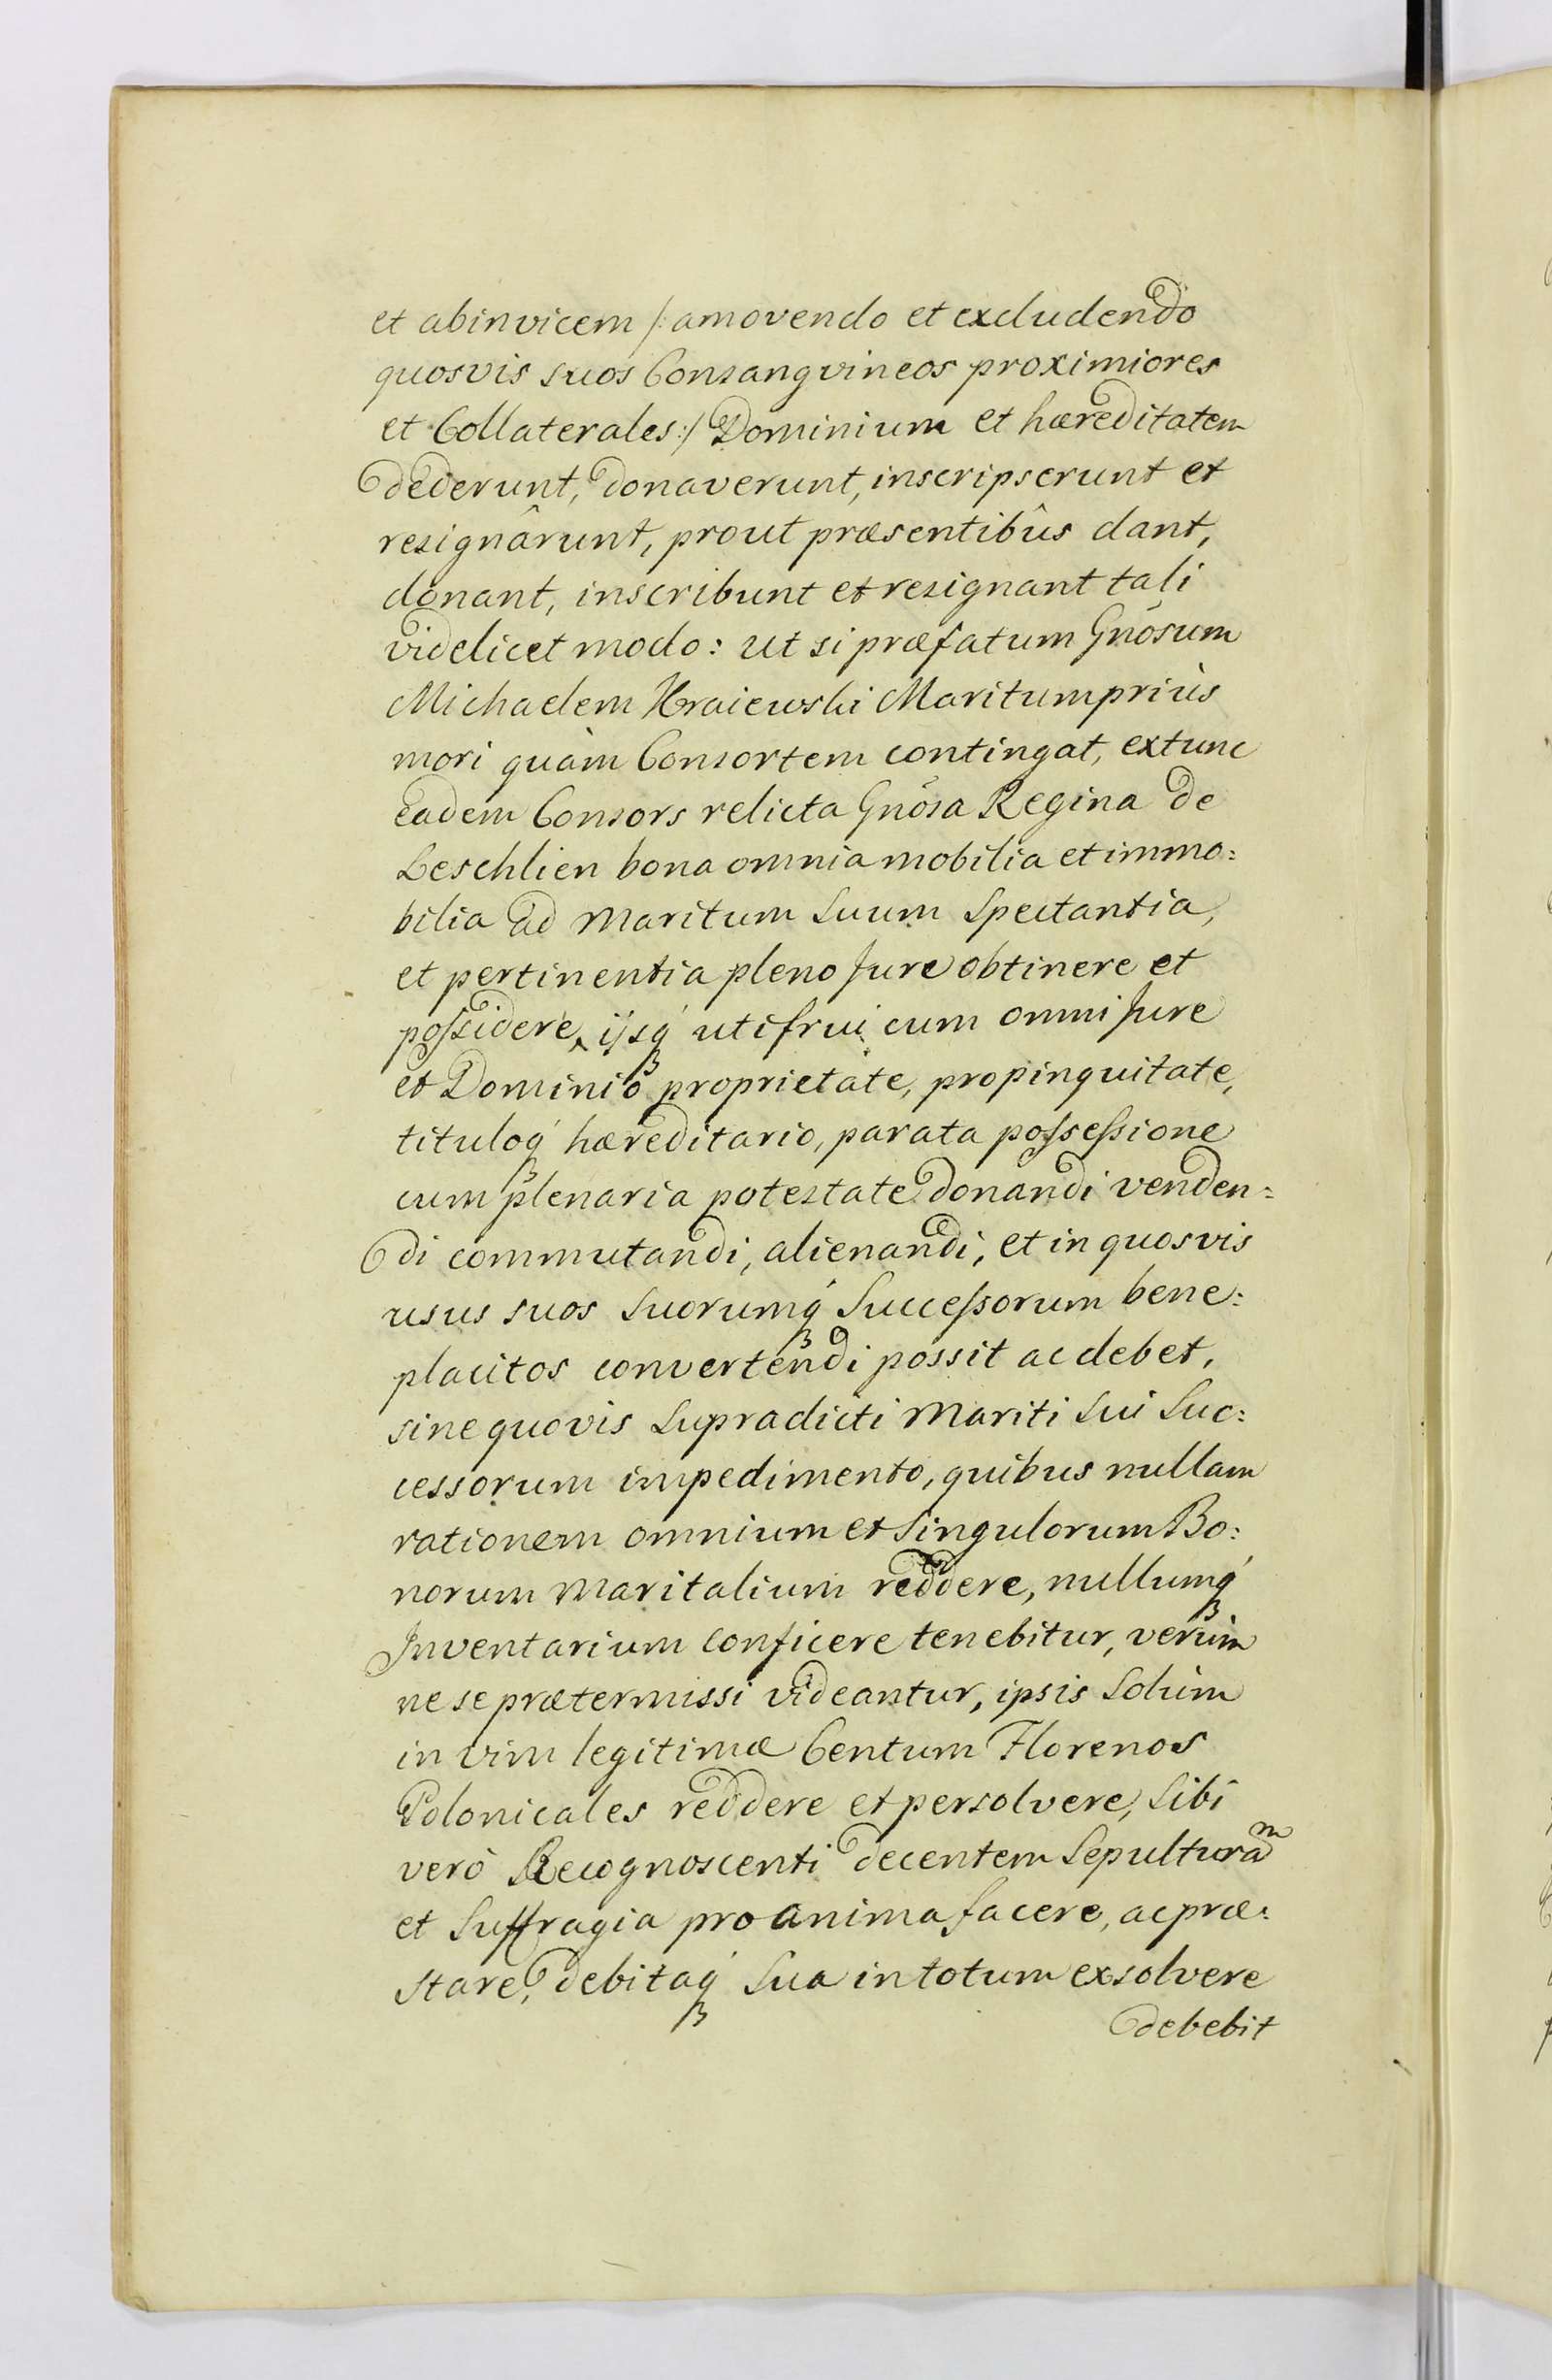 et abinvicem /: amovendo et excludendo
quosvis suos Consangvineos proximiores
et Collaterales :/ Dominium et hæreditatem
dederunt, donaverunt, inscripserunt et
resignârunt, prout præsentibûs dant,
donant, inscribunt et resignant tali
videlicet modo: ut si præfatum Gnōsum
Michaelem Kraiewski Maritum priùs
mori quàm Consortem contingat, extunc
eadem Consors relicta Gnōsa Regina de
Leschlien bona omnia mobilia et immo:
bilia ad Maritum Suum Spectantia,
et pertinentia pleno Jure obtinere et
poſsidere, ijsq́ꝫ uti frui cum omni Jure
et Dominio proprietate, propinquitate,
tituloq́ꝫ hæreditario, parata poſseſsione
cum plenaria potestate donandi venden:
di commutandi, alienandi, et in quosvis
usus suos Suorumq́ꝫ Succeſsorum bene:
placitos convertendi possit ac debet,
sine quovis Supradicti Mariti Sui Suc:
cessorum impedimento, quibus nullam
rationem omnium et Singulorum Bo:
norum Maritalium reddere, nullumq́ꝫ
Inventarium conficere tenebitur, verùm
ne se prætermissi videantur, ipsis Solùm
in vim legitimæ Centum Florenos
Polonicales reddere et persolvere, Sibi
verò Recognoscenti decentem Sepulturam
et Suffragia pro anima facere, ac præ:
stare, debitaq́ꝫ Sua in totum exsolvere
debebit